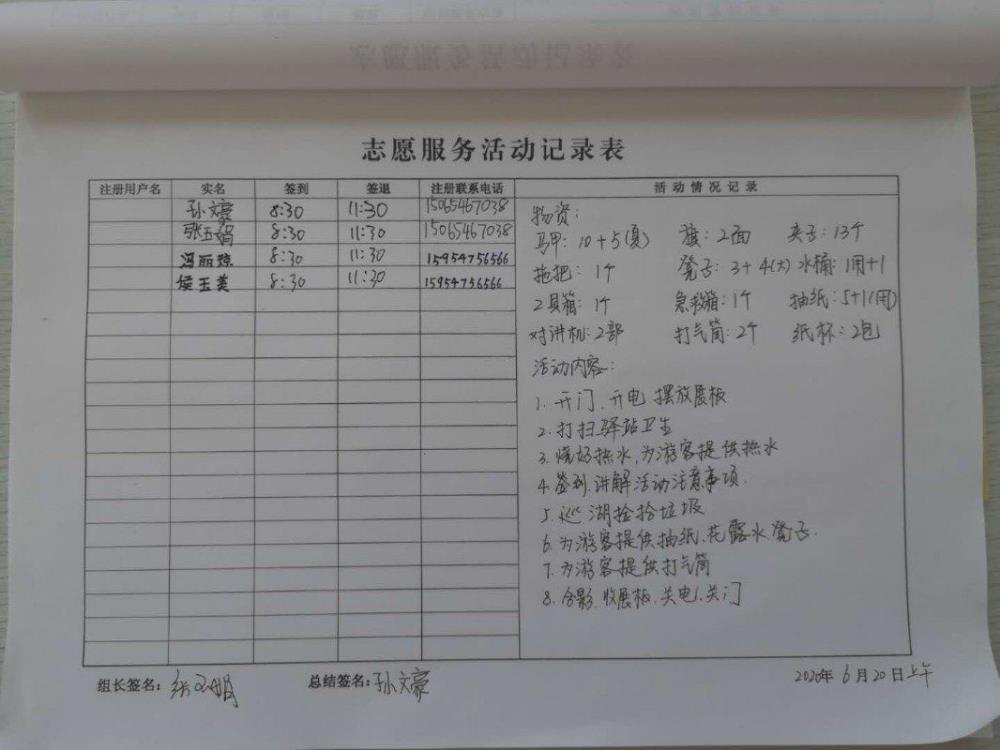 志愿服务活动记录表
注册用户名 实名 签到 签退 注册联系电话 活动情况记录
孙文豪 8:30 11:30 15065467038
张玉娟 8:30 11:30 15065467038
冯丽琼 8:30 11:30 15954756566
侯玉美 8:30 11:30 15954756566
物资:
马甲: 10+5(夏) 旗: 2面 夹子: 13个
拖把: 1个 凳子: 3+4(大) 水桶: 1用+1
工具箱: 1个 急救箱: 1个 抽纸: 5+1(用)
对讲机: 2部 打气筒: 2个 纸杯: 2包
活动内容:
1. 开门、开电、摆放展板
2. 打扫驿站卫生
3. 烧好热水,为游客提供热水
4. 签到,讲解活动注意事项.
5. 巡湖捡拾垃圾
6. 为游客提供抽纸、花露水、凳子.
7. 为游客提供打气筒
8. 合影、收展板、关电、关门
组长签名: 总结签名: 孙文豪 2020年6月20日上午